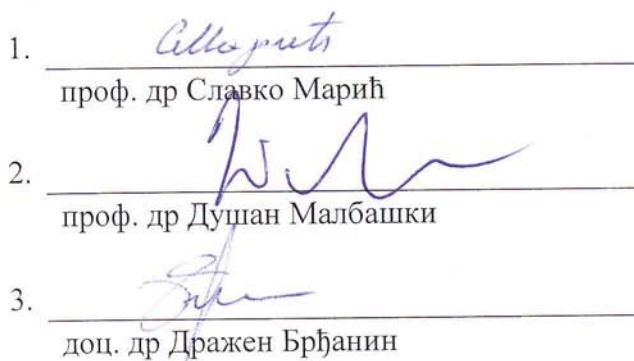 1.
проф. др Славко Марић
2.
проф. др Душан Малбашки
3.
доц. др Дражен Брђанин